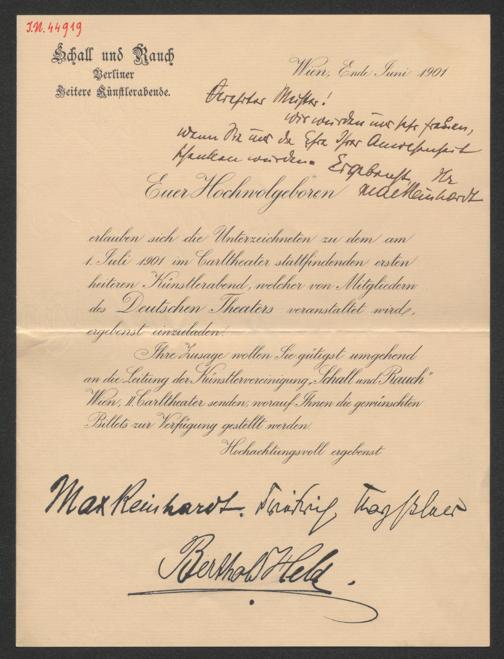 I.N. 44919
Schall und Rauch
Berliner
Heitere Künstlerabende.
Wien, Ende Juni 1901
Verehrter Meister!
Wir würden uns sehr freuen,
wenn Sie uns die Ehre Ihrer Anwesenheit
schenken würden. Ergebenst, Ihr
Max Reinhardt
Euer Hochwolgeboren
erlauben sich die Unterzeichneten zu dem am
1. Juli 1901 im Carltheater stattfindenden ersten
heiteren Künstlerabend, welcher von Mitgliedern
des Deutschen Theaters veranstaltet wird,
ergebenst einzuladen!
Ihre Zusage wollen Sie gütigst umgehend
an die Leitung der Künstlervereinigung „Schall und Rauch"
Wien, II. Carltheater senden, worauf Ihnen die gewünschten
Billets zur Verfügung gestellt werden.
Hochachtungsvoll ergebenst
Max Reinhardt. Friedrich Kayssler
Berthold Held.